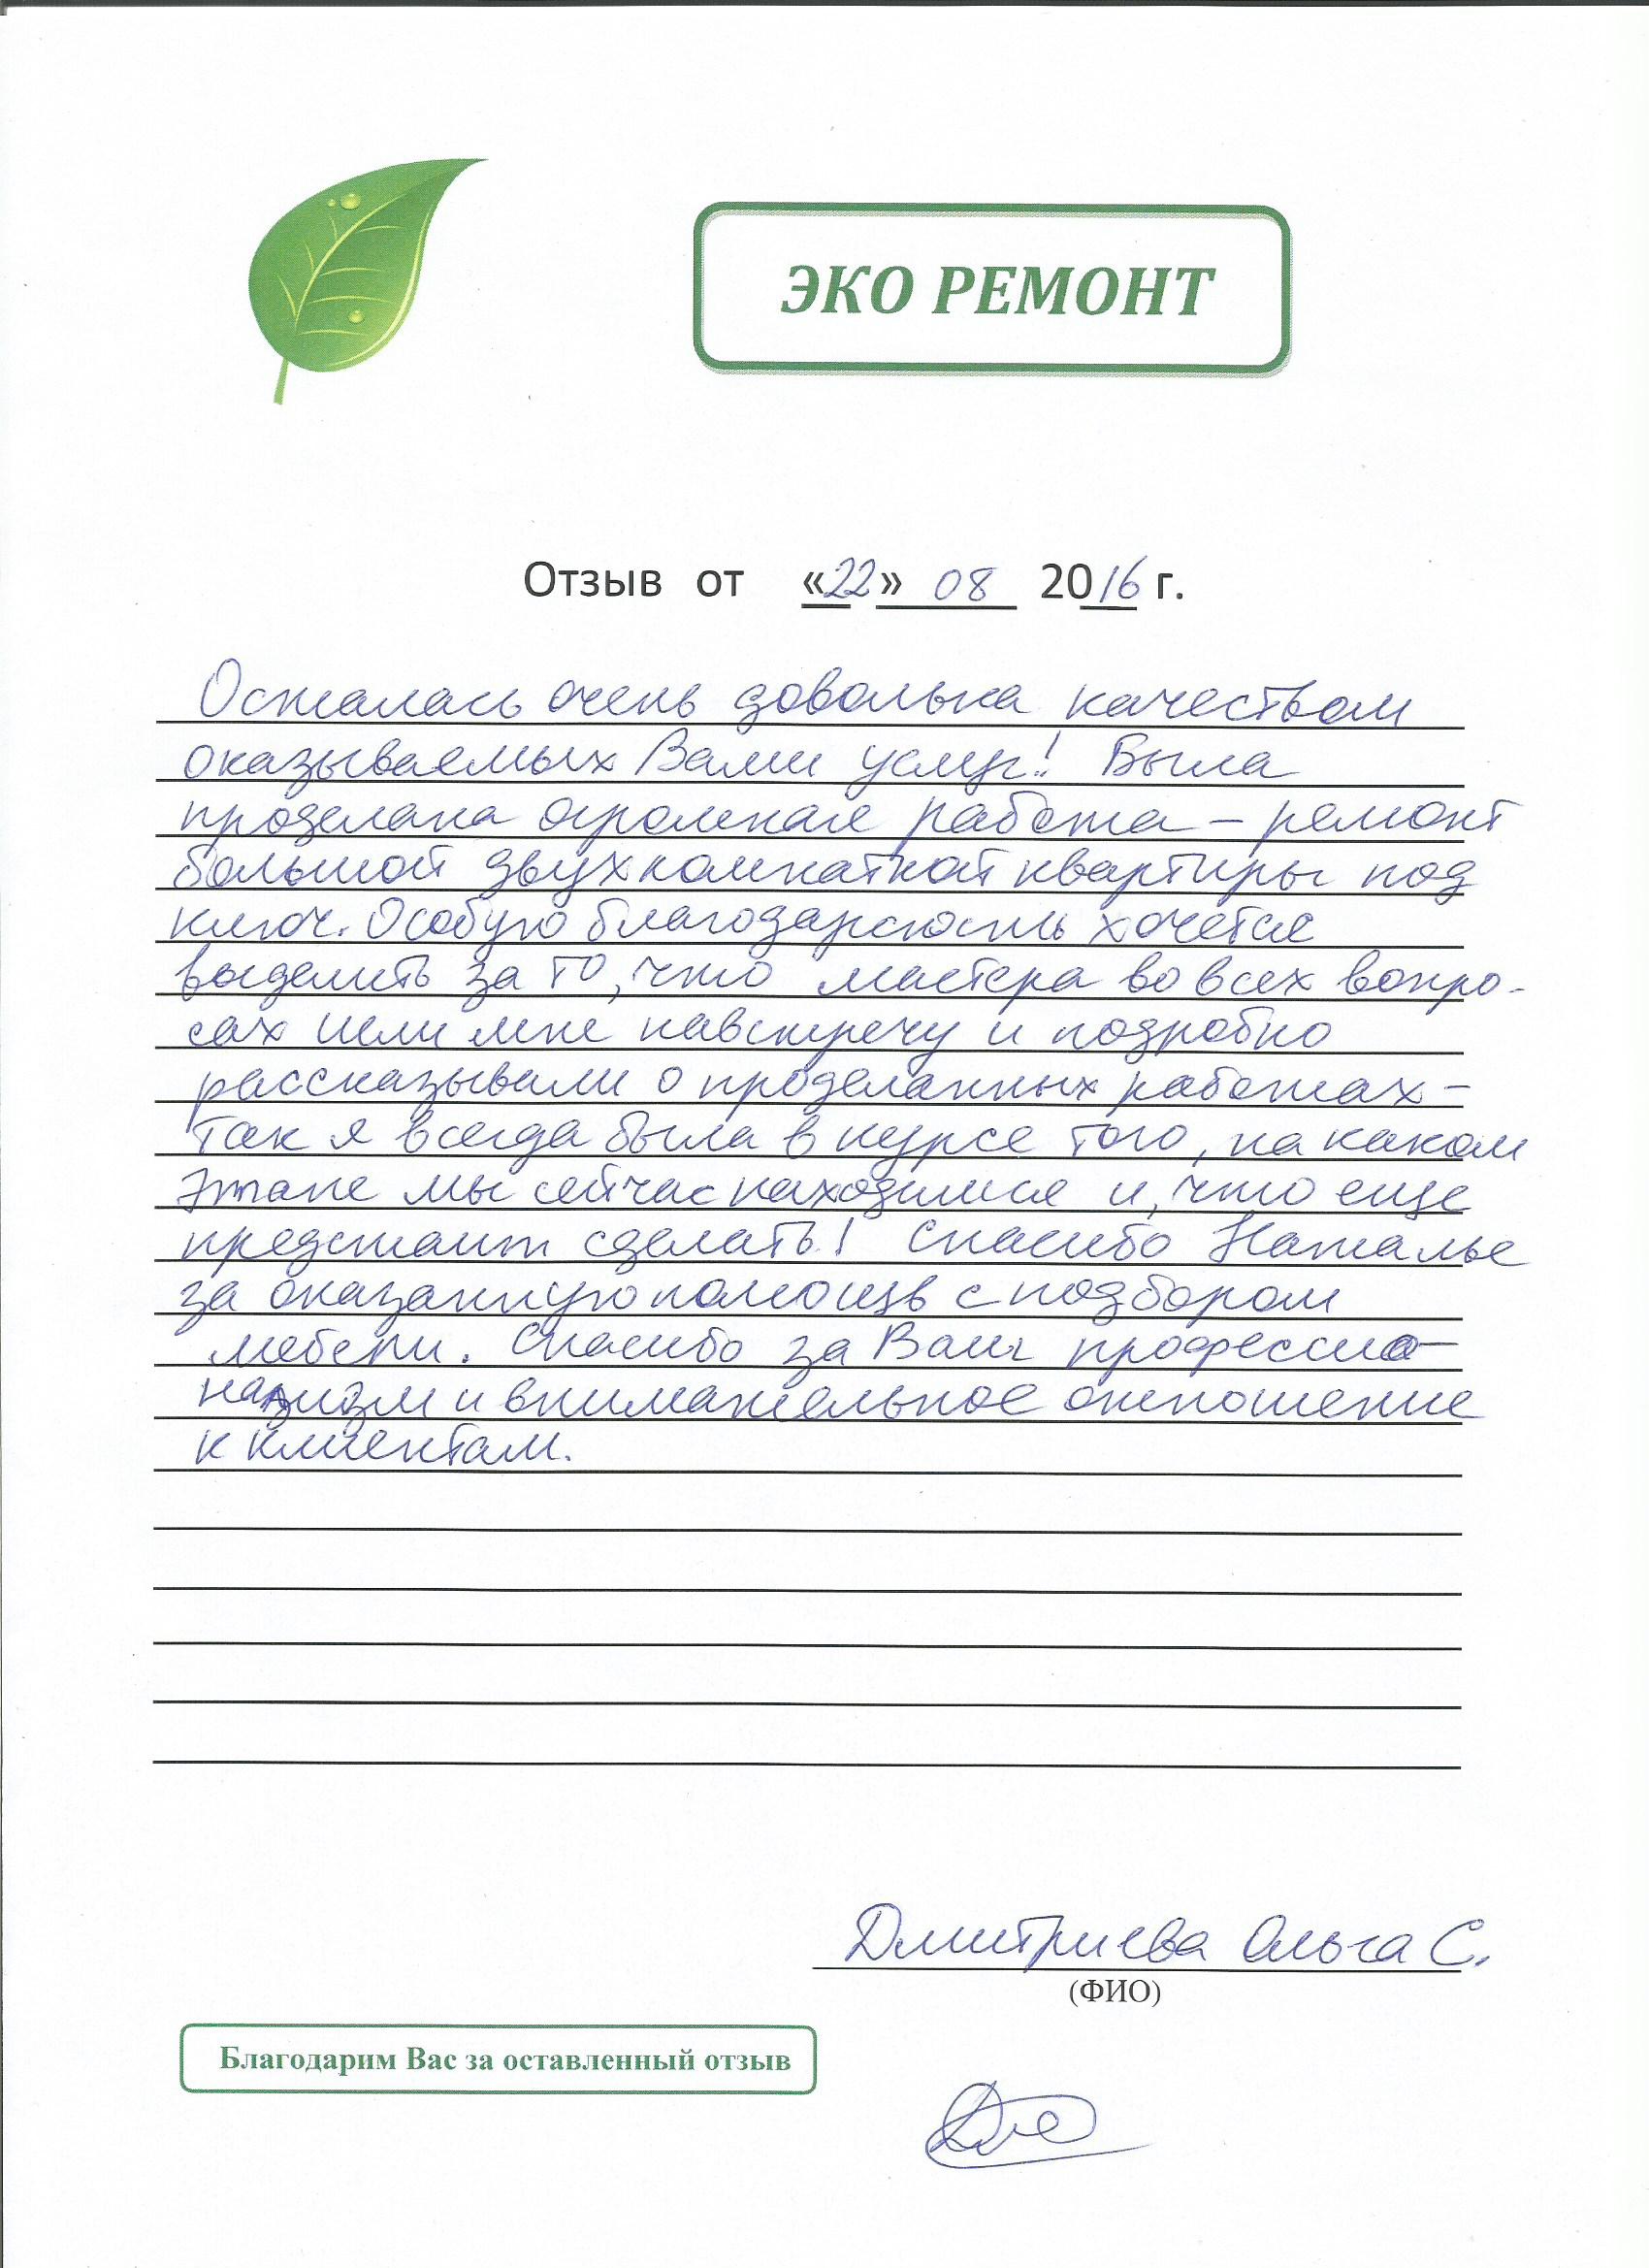 ЭКО РЕМОНТ
Отзыв от «22» 08 2016 г.
Осталась очень довольна качеством
оказываемых Вами услуг! Была
проделана огромная работа – ремонт
большой двухкомнатной квартиры под
ключ. Особую благодарность хочется
выделить за то, что мастера во всех вопро-
сах шли мне навстречу и подробно
рассказывали о проделанных работах –
так я всегда была в курсе того, на каком
этапе мы сейчас находимся и, что еще
предстоит сделать! Спасибо Наталье
за оказанную помощь с подбором
мебели. Спасибо за Ваш профессио-
нализм и внимательное отношение
к клиентам.
Дмитриева Ольга С.
(ФИО)
Благодарим Вас за оставленный отзыв